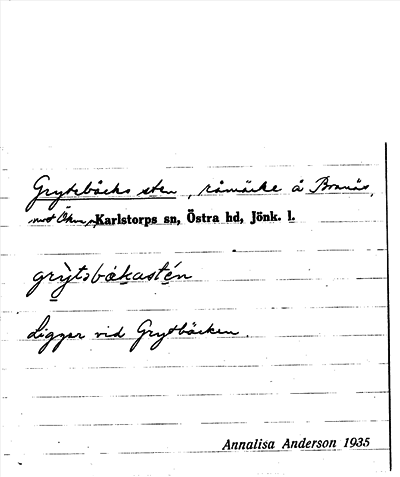 Grytebäcks sten, råmärke å Branäs,
mot Ökna, Karlstorps sn, Östra hd, Jönk. l.
grỳtsbækastén
Ligger vid Grytbäcken.
Annalisa Anderson 1935